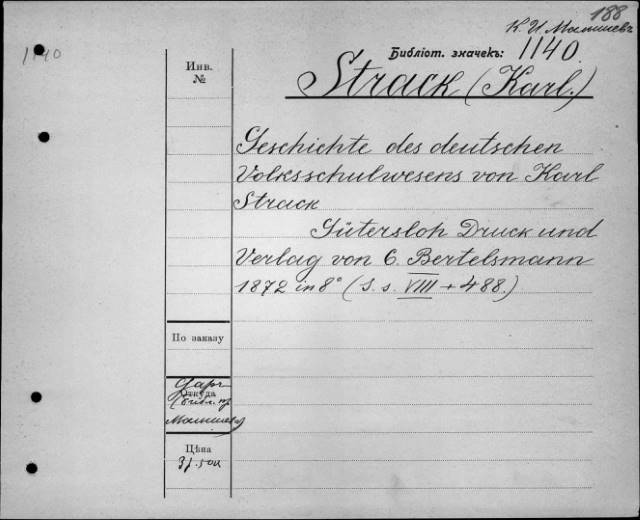 188
К. И. Малышевъ
1140
Библіот. значекъ: 1140.
Инв.
№
Strack (Karl.)
Geschichte des deutschen
Volksschulwesens von Karl
Strack
Gütersloh Druck und
Verlag von C. Bertelsmann
1872 in 8° (S. s. VIII + 488.)
По заказу
Откуда
Даръ
Библ. пр.
Малышева
Цѣна
3 р. 50 к